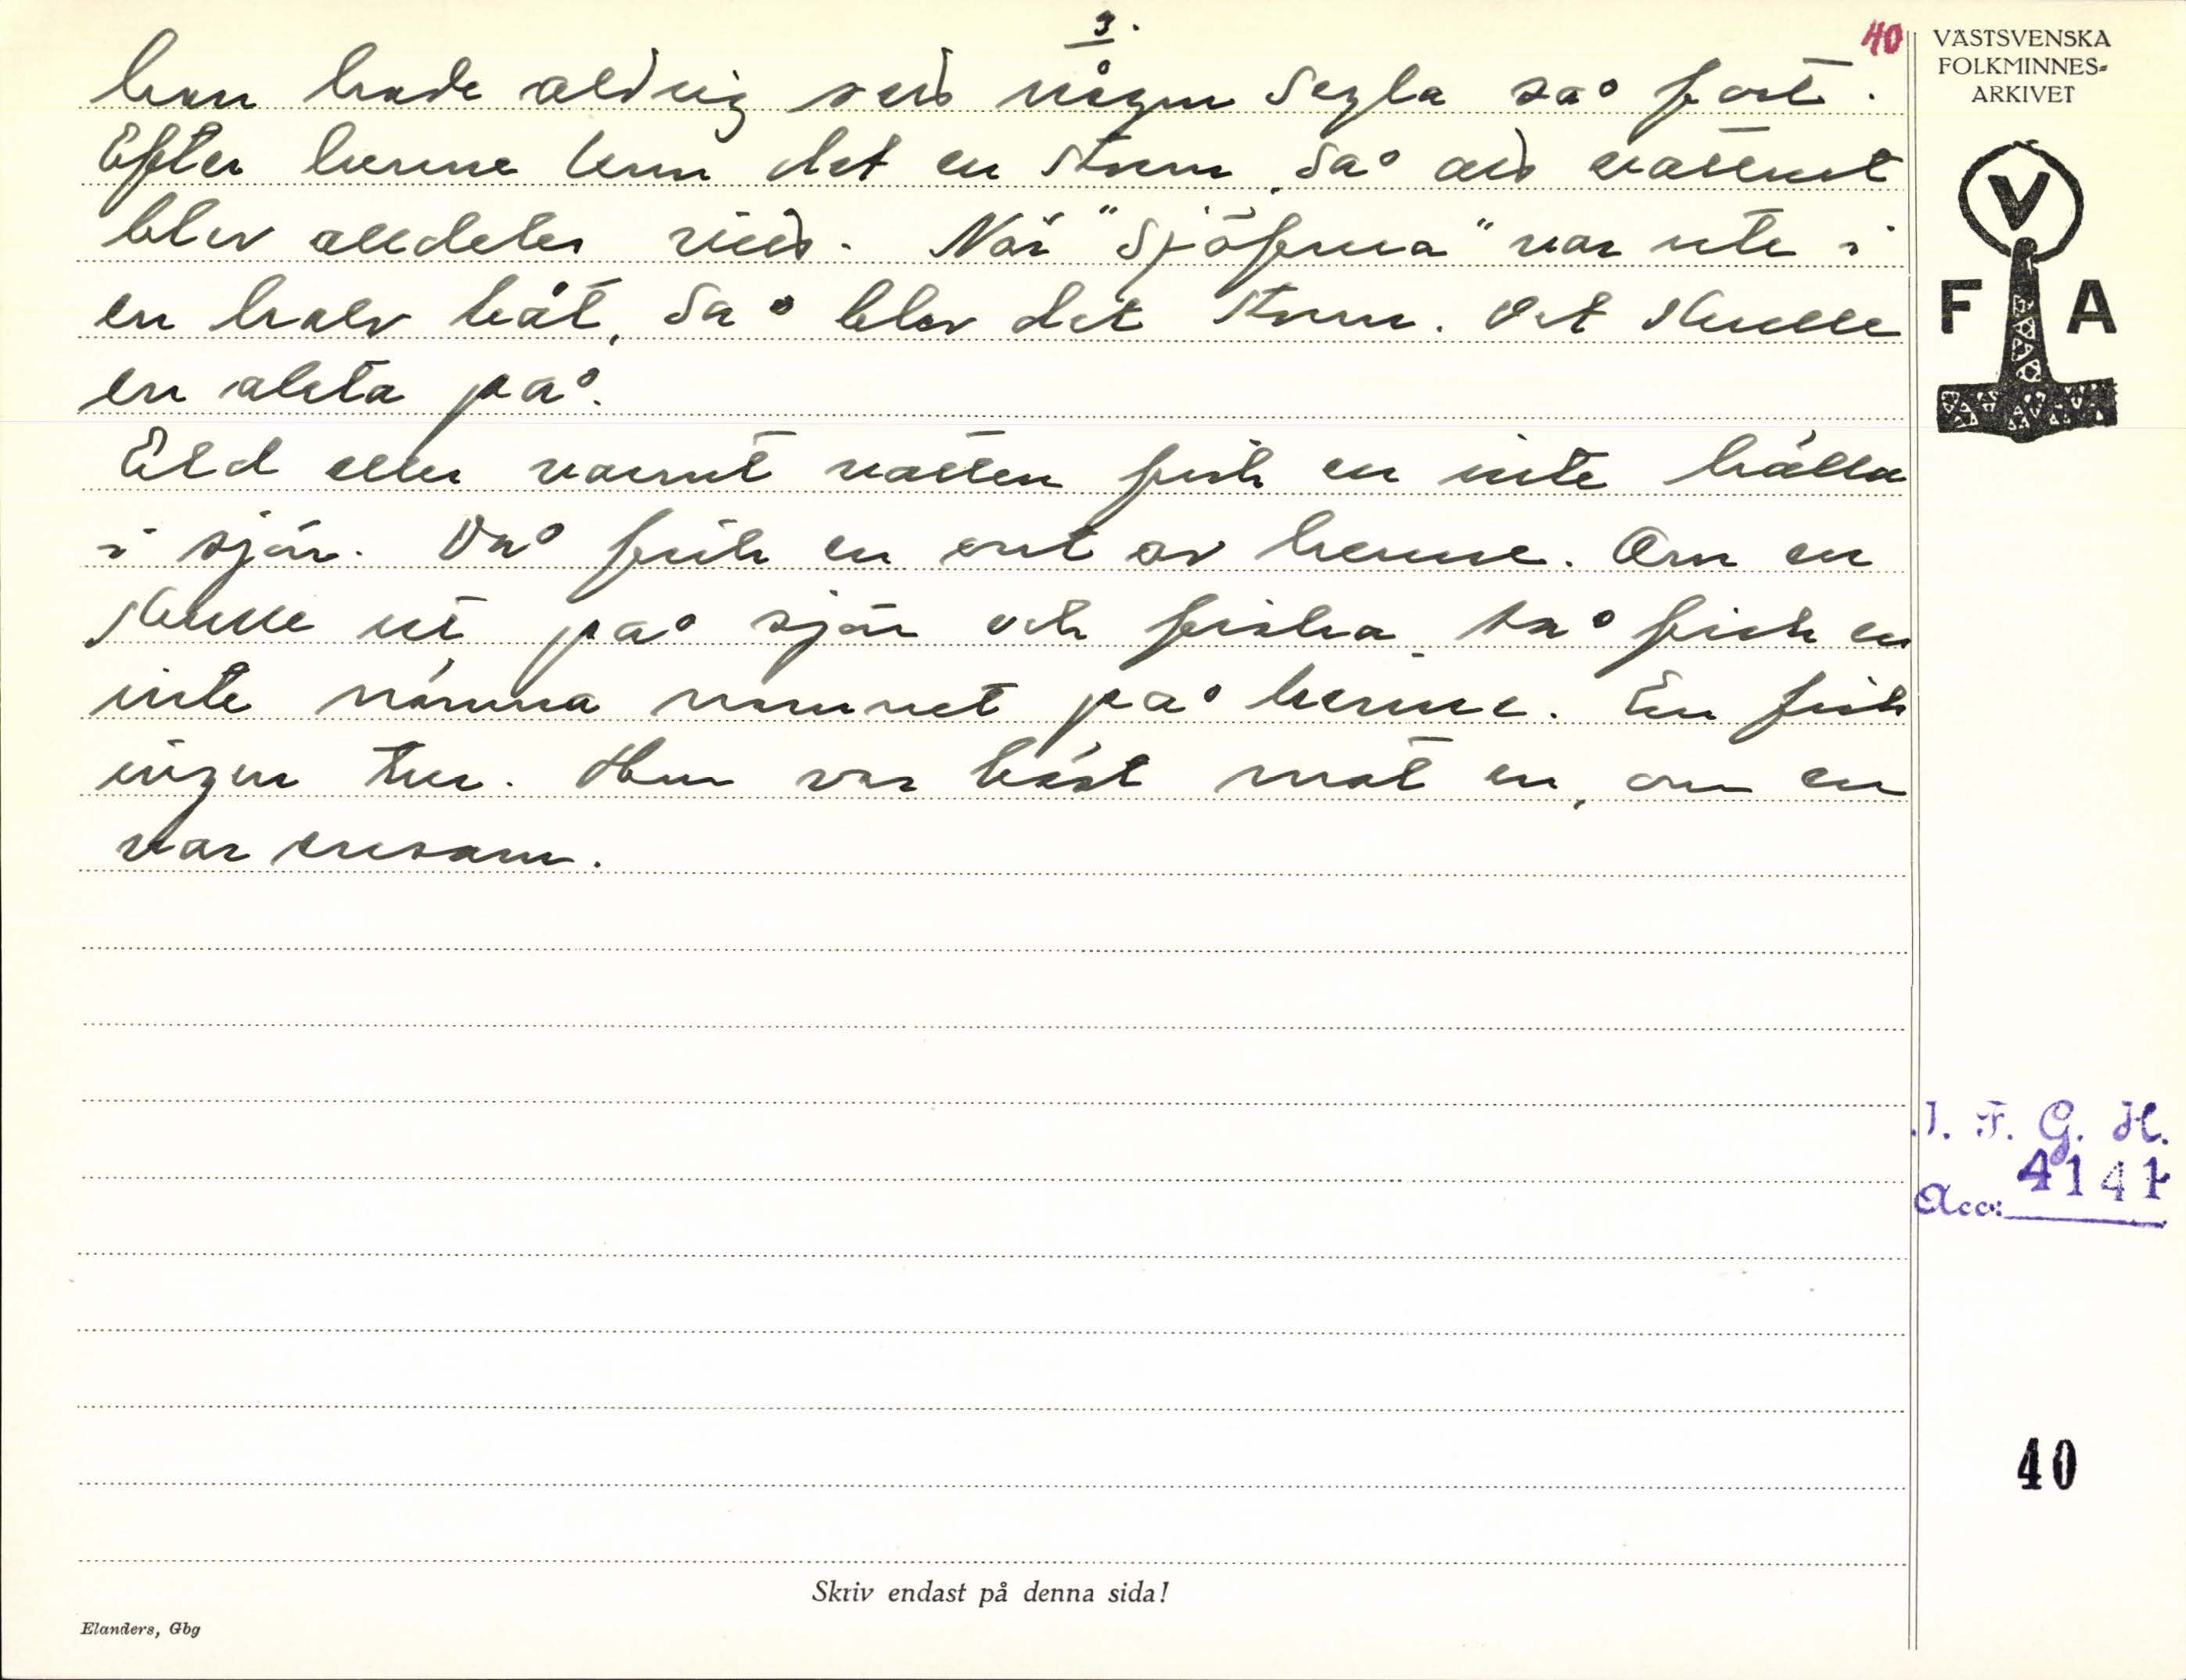 3.
40
han hade aldrig sett någon segla så fort.
Efter henne kom det en storm, så att vattnet
blev alldeles vitt. När "Sjöfrua" var ute i
en halv båt, så blev det storm. Det skulle
en akta på.
Eld eller varmt vatten fick en inte hålla
i sjön. Då fick en ont av henne. Om en
skulle ut på sjön och fiska, så fick en
inte nämna namnet på henne. En fick
ingen tur. Hon var bäst mot en, om en
var ensam.
VÄSTSVENSKA
FOLKMINNES-
ARKIVET
V
F A
I. F. G. H.
Acc: 4141
40
Skriv endast på denna sida!
Elanders, Gbg